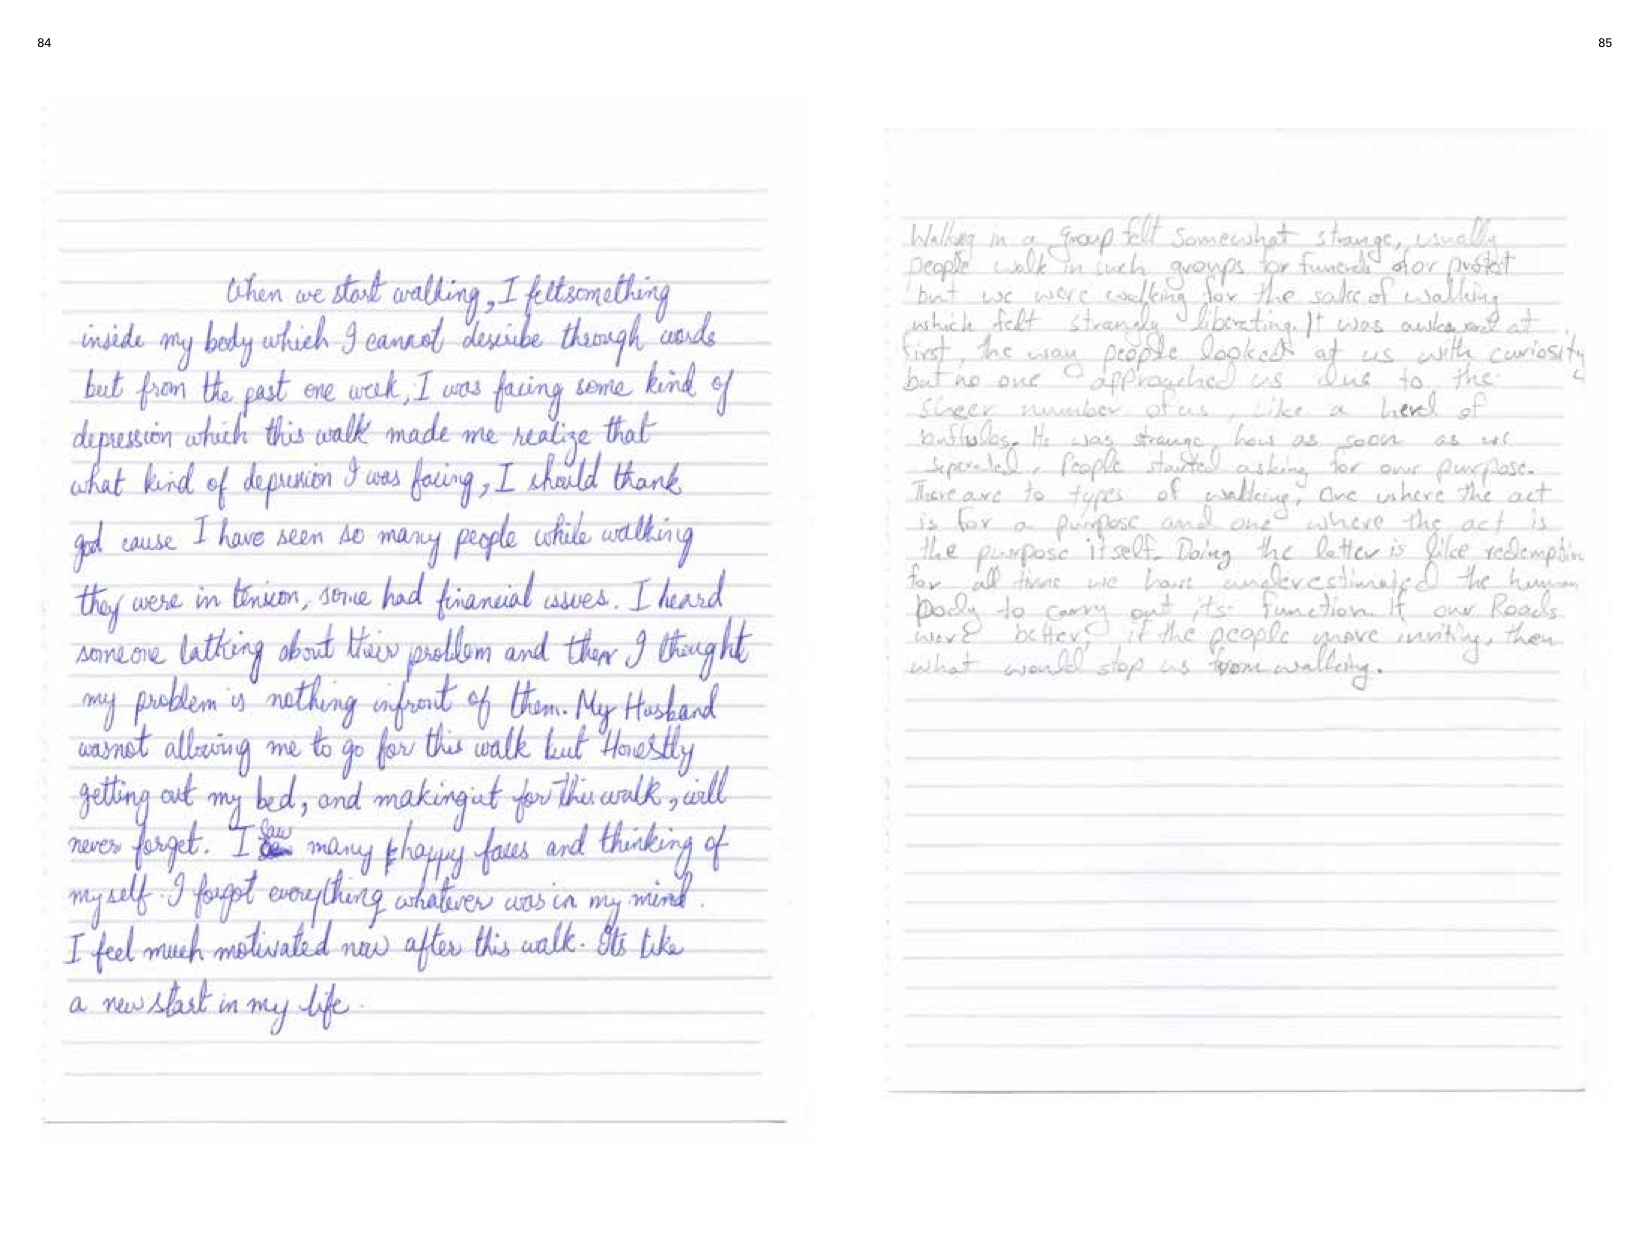 84
When we start walking, I felt something
inside my body which I cannot describe through words
but from the past one week, I was facing some kind of
depression which this walk made me realize that
what kind of depression I was facing, I should thank
god cause I have seen so many people while walking
they were in tension, some had financial issues. I heard
someone latking about their problem and then I thought
my problem is nothing infront of them. My Husband
wasnot allowing me to go for this walk but Honestly
getting out my bed, and making it for this walk, will
never forget. I saw many happy faces and thinking of
myself. I forgot everything whatever was in my mind.
I feel much motivated now after this walk. Its like
a new start in my life.
85
Walking in a group felt somewhat strange, usually
people walk in such groups for funerals or protest
but we were walking for the sake of walking
which felt strangly liberating. It was awkward at
first, the way people looked at us with curiosity
but no one approached us due to the
sheer number of us, Like a herd of
buffulos. It was strange, how as soon as we
seperated, People started asking for our purpose.
There are to types of walking, One where the act
is for a purpose and one where the act is
the purpose itself. Doing the latter is like redemption
for all time we have underestimated the human
body to carry out its function. If our Roads
were better, if the people more inviting, then
what would stop us from walking.